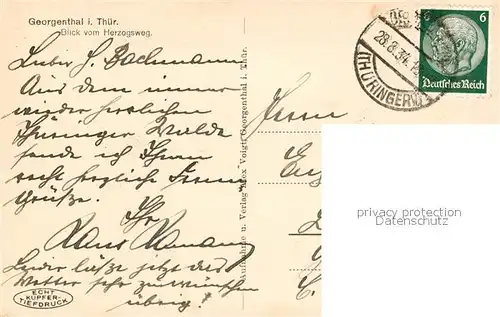 Georgenthal i. Thür.
Blick vom Herzogsweg.
Lieber H. Bachmann
Aus dem immer
wieder herrlichen
Thüringer Walde
sende ich Ihnen
recht herzliche Ferien
Grüße.
Ihr
Hans
Leider läßt jetzt das
Wetter sehr zu wünschen
übrig!
ECHT
KUPFER-
TIEFDRUCK
Aufnahme u. Verlag Alex Voigt, Georgenthal i. Thür.
Herrn
28.8.34
(THÜRINGERW
6
Deutsches Reich
privacy protection
Datenschutz